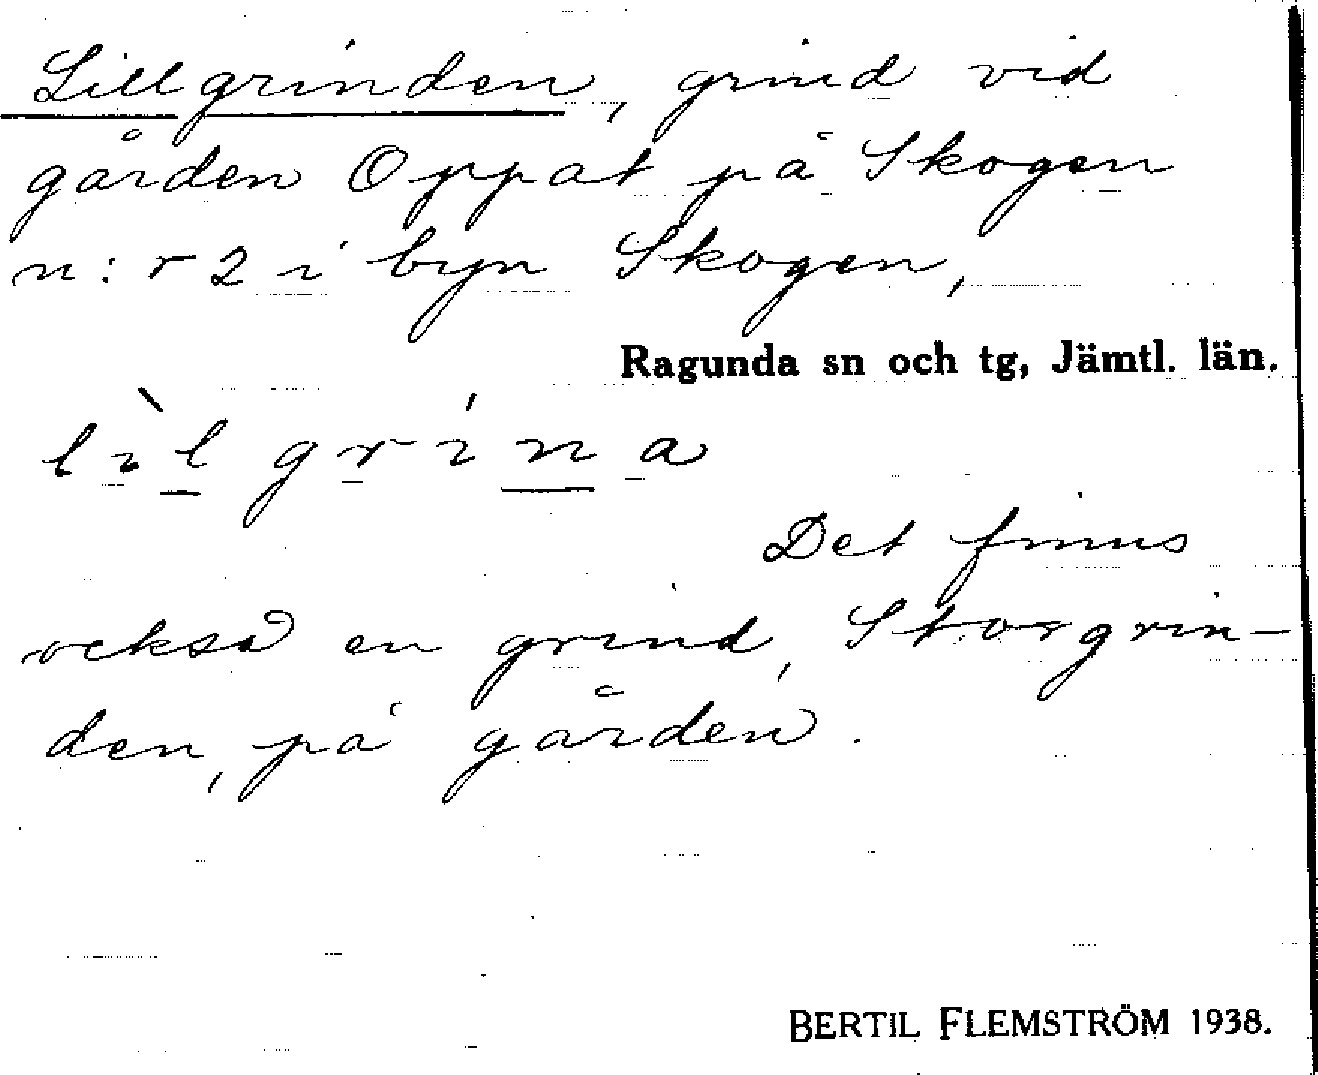 Lillgrinden, grind vid
gården Oppat på Skogen
n:r 2 i byn Skogen,
Ragunda sn och tg, Jämtl. län.
lìlgrína
Det finns
också en grind, Storgrin-
den, på gården.
BERTIL FLEMSTRÖM 1938.